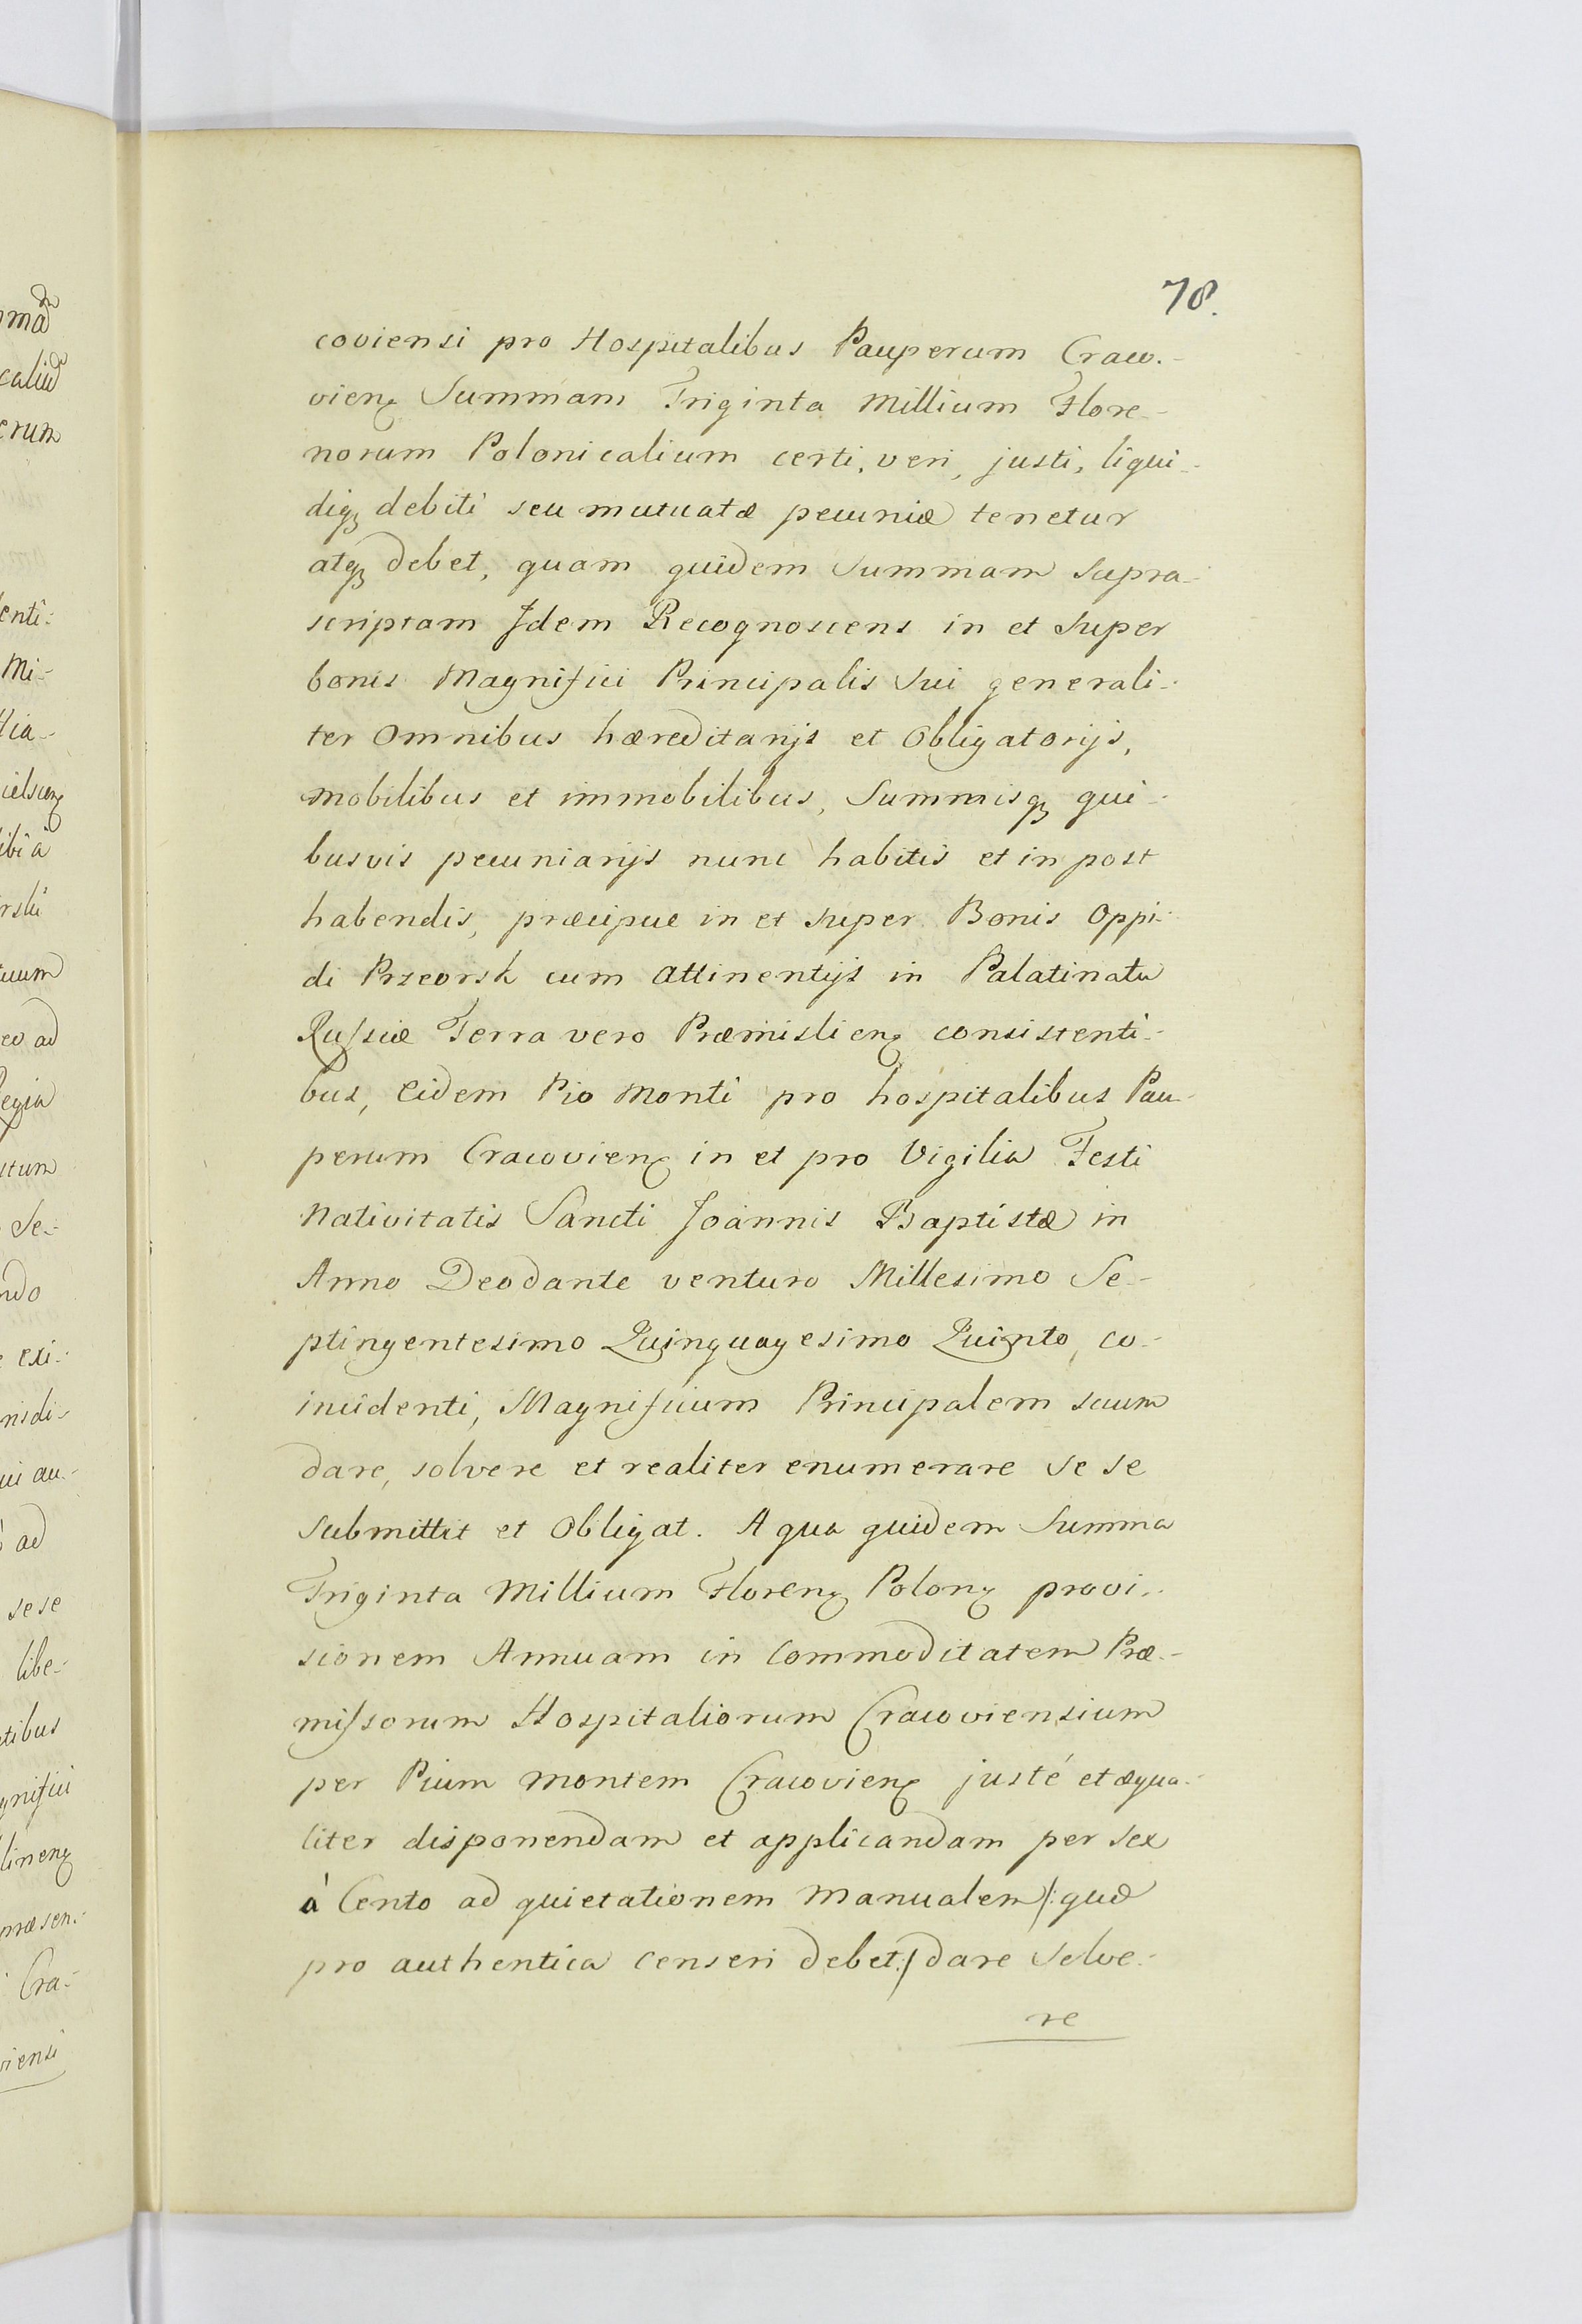 78.
coviensi pro Hospitalibus Pauperum Craco-
vien̄ Summam Triginta Millium Flore-
norum Polonicalium certi, veri, justi, liqui-
diq̨ debiti seu mutuatæ pecuniæ tenetur
atq̨ debet, quam quidem Summam supra-
scriptam Idem Recognoscens in et super
bonis Magnifici Principalis Sui generali-
ter omnibus hæreditarijs et Obligatorijs,
mobilibus et immobilibus, Summisq̨ qui-
busvis pecuniarijs nunc habitis et in post
habendis, præcipue in et super Bonis Oppi-
di Przeorsk cum attinentijs in Palatinatu
Russiæ Terra vero Præmislien̄ consistenti-
bus, eidem Pio Monti pro hospitalibus Pau-
perum Cracovien̄ in et pro Vigilia Festi
Nativitatis Sancti Joannis Baptistæ in
Anno Deodante venturo Millesimo Se-
ptingentesimo Quinquagesimo Quinto, co-
incidenti, Magnificum Principalem suum
dare, solvere et realiter enumerare se se
submittit et Obligat. A qua quidem Summa
Triginta Millium Floren̄ Polon̄ provi-
sionem Annuam in Commoditatem Præ-
missorum Hospitaliorum Cracoviensium
per Pium Montem Cracovien̄ justé et æqua-
liter disponendam et applicandam per sex
à Cento ad quietationem Manualem /: quæ
pro authentica censeri debet :/ dare Solve-
re